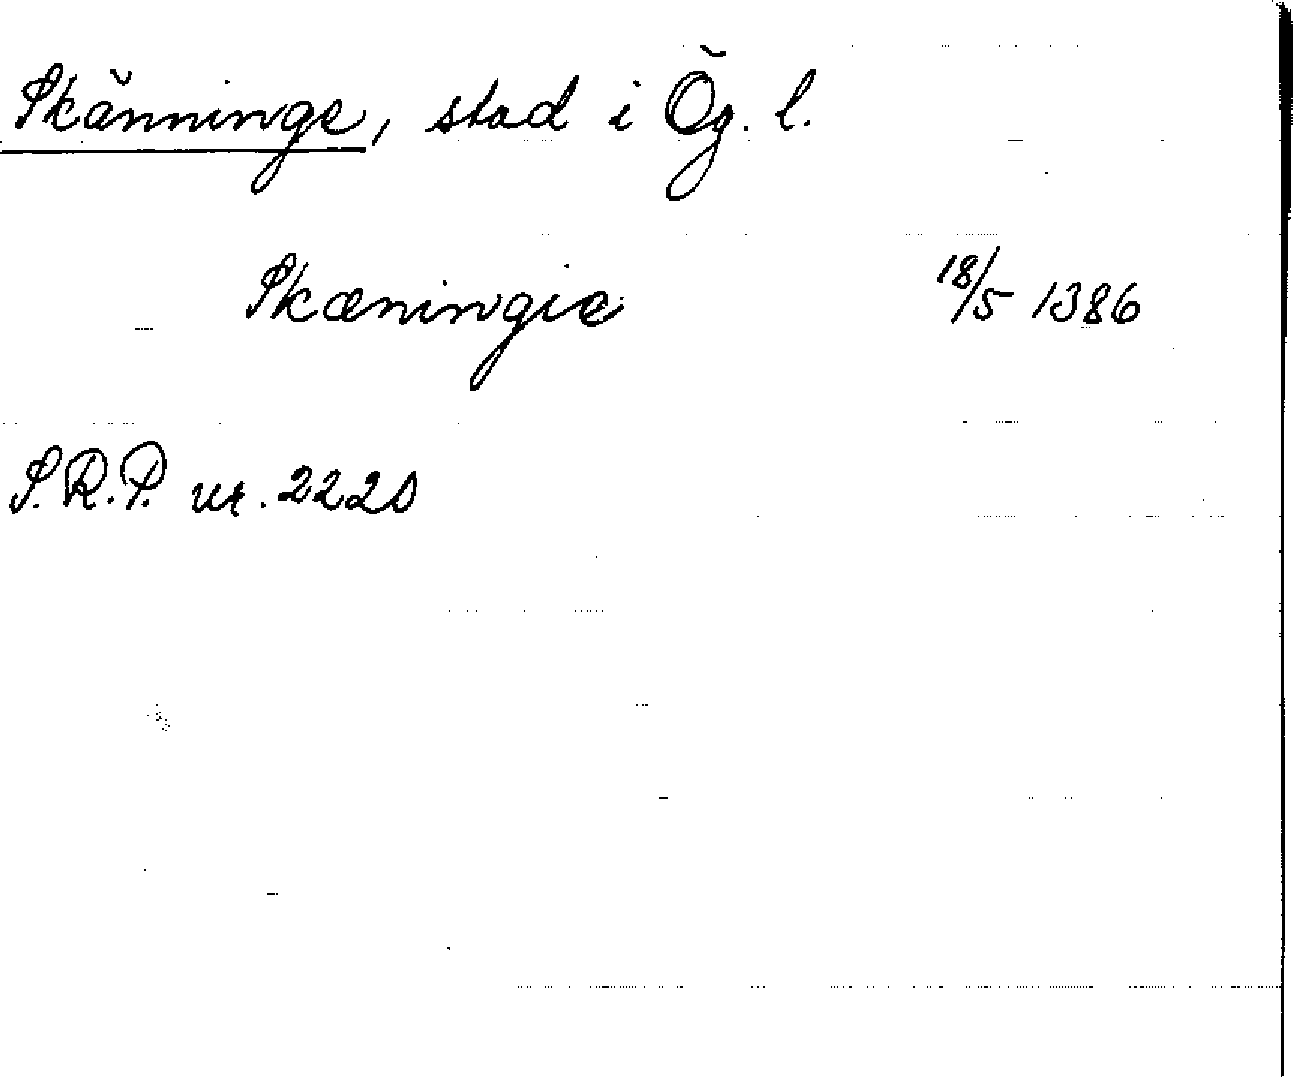 Skänninge, stad i Ög. l.
Skæningie 18/5 1386
S.R.P. nr. 2220